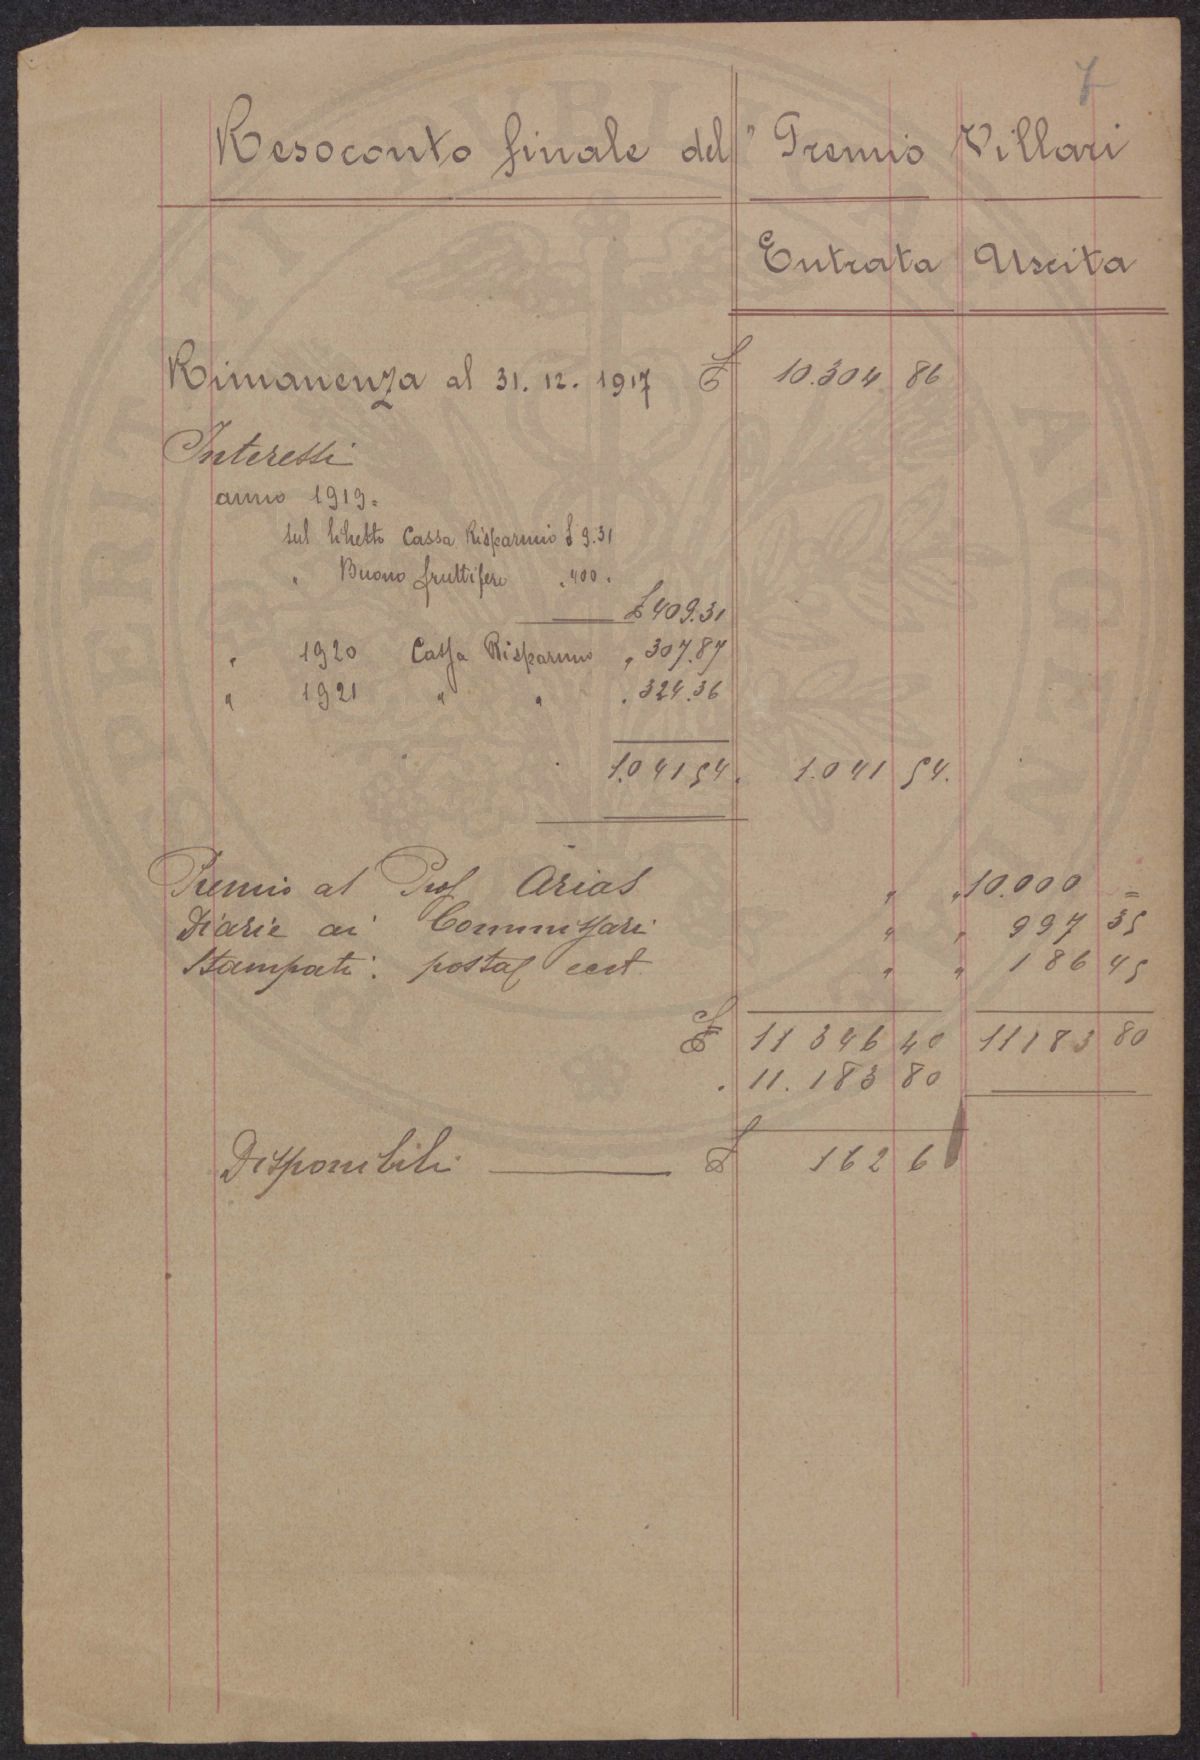 7
Resoconto finale del "Premio Villari
Entrata Uscita
Rimanenza al 31.12.1917 £ 10.304 86
Interessi
anno 1919.
sul libretto Cassa Risparmio £ 9.31
" Buono fruttifero " 400 "
£ 409.31
" 1920 Cassa Risparmio " 307.87
" 1921 " " " 324.36
1.041 54. 1.041 54.
Premio al Prof Arias " " 10.000 =
Diarie ai Commissari " " 997 35
Stampati: postal " " 186 45
£ 11 346 40 11183 80
" 11.183 80
Disponibili £ 162 6